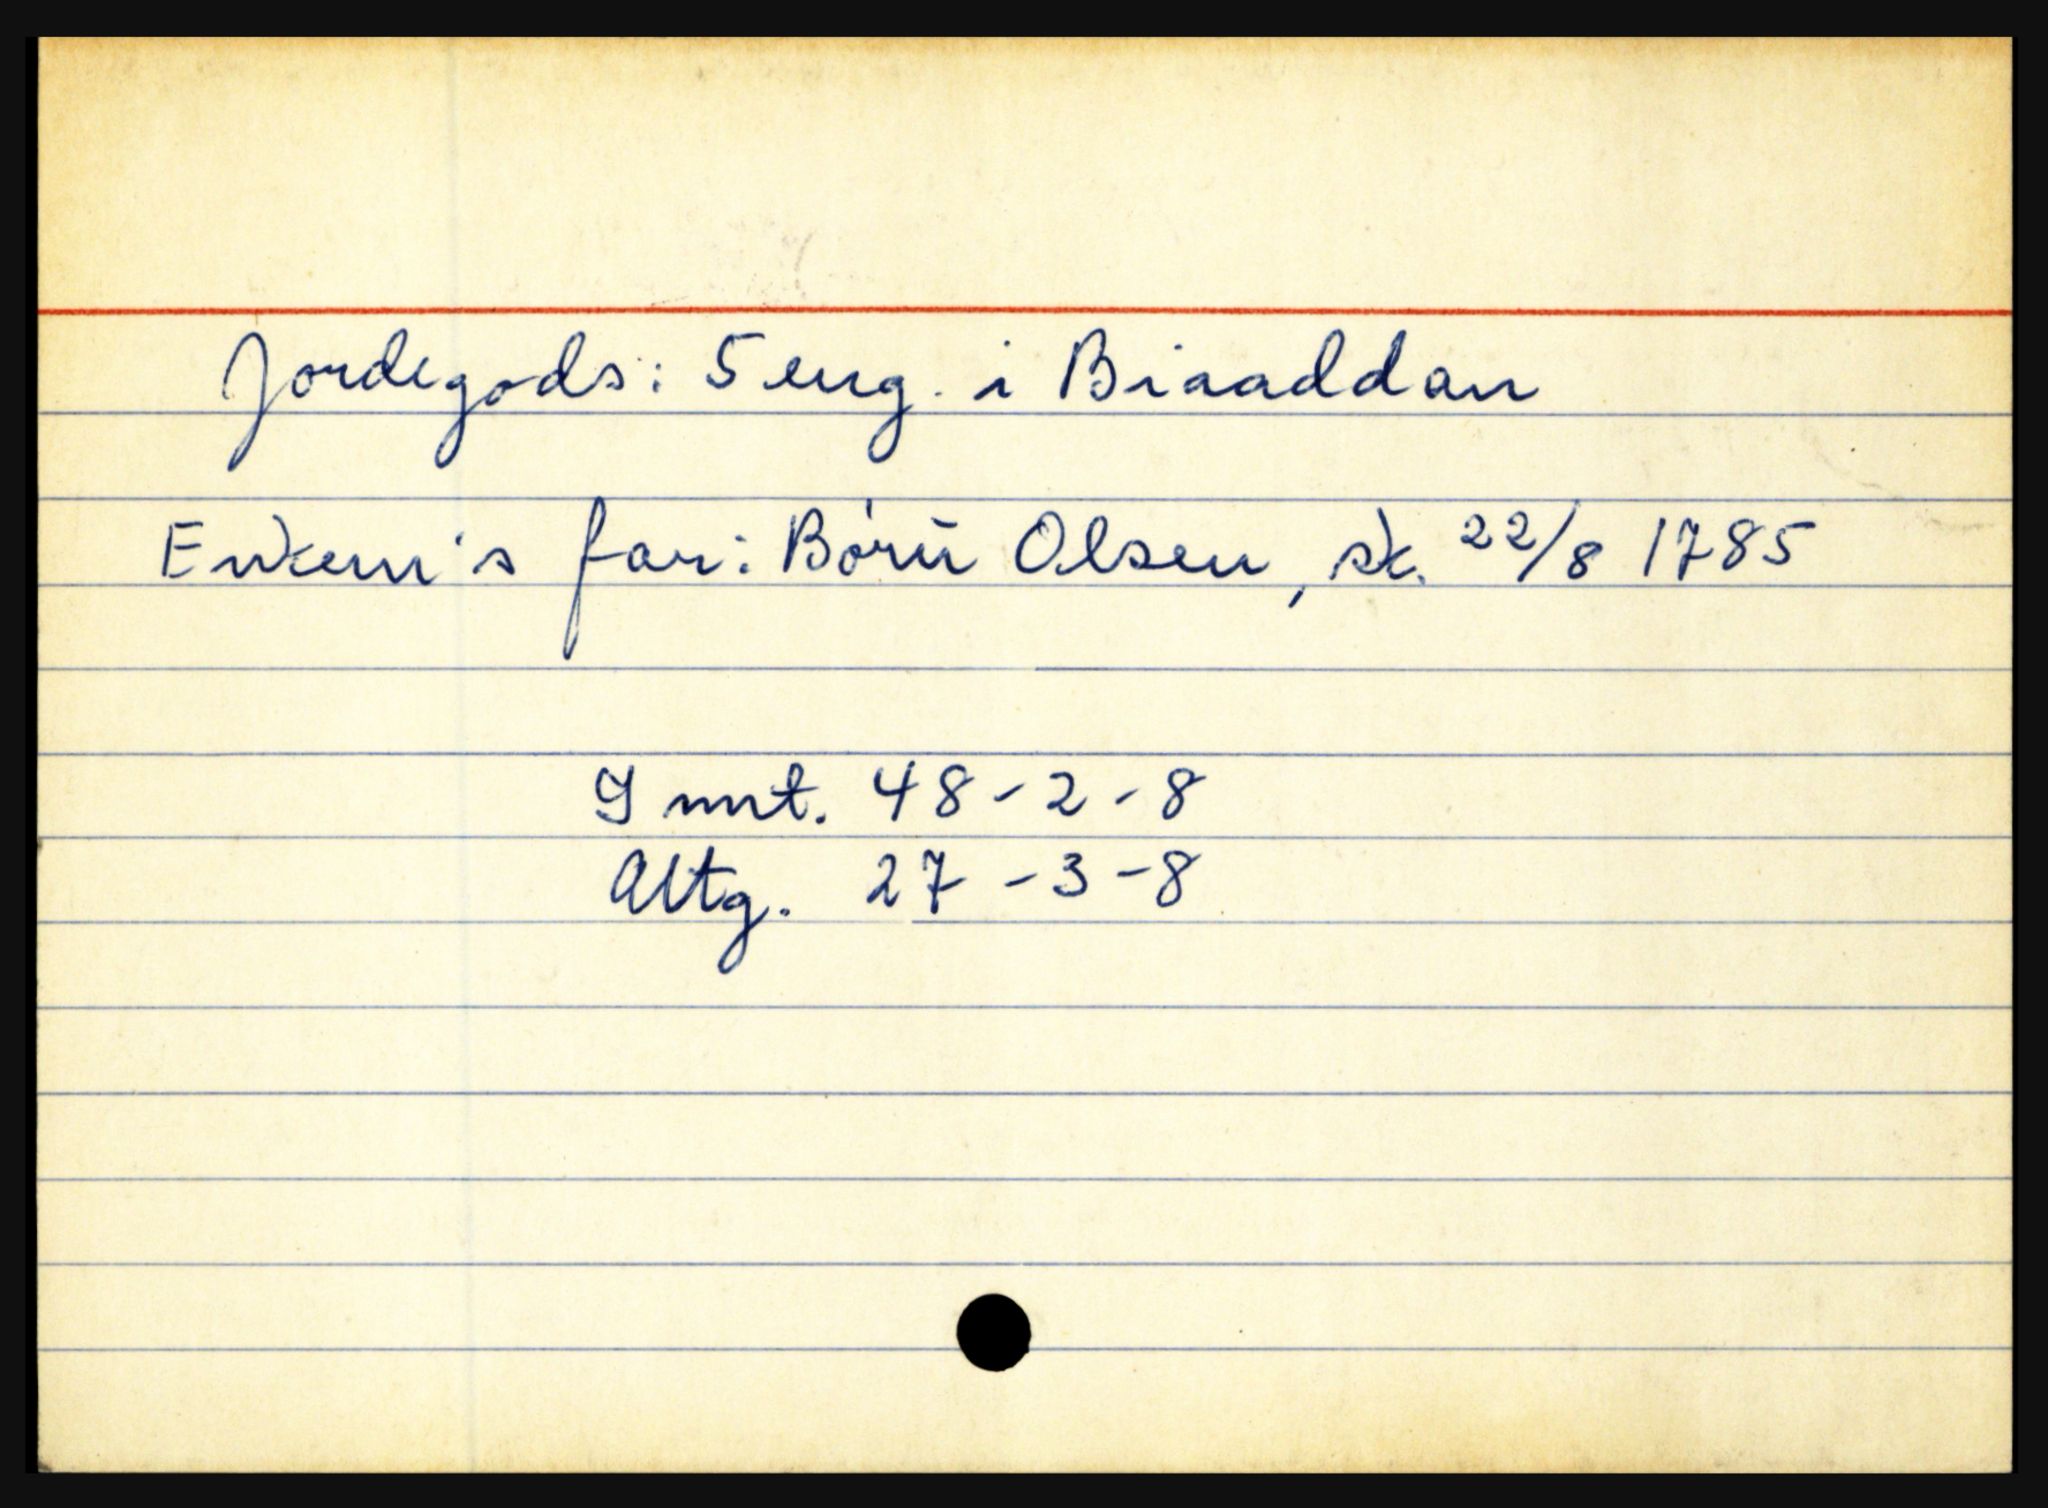 Jordegods: 5 eng. i Biaaddan
Enkem's far: Børū Olsen, sk. 22/8 1785
I mt. 48-2-8
Altg. 27-3-8